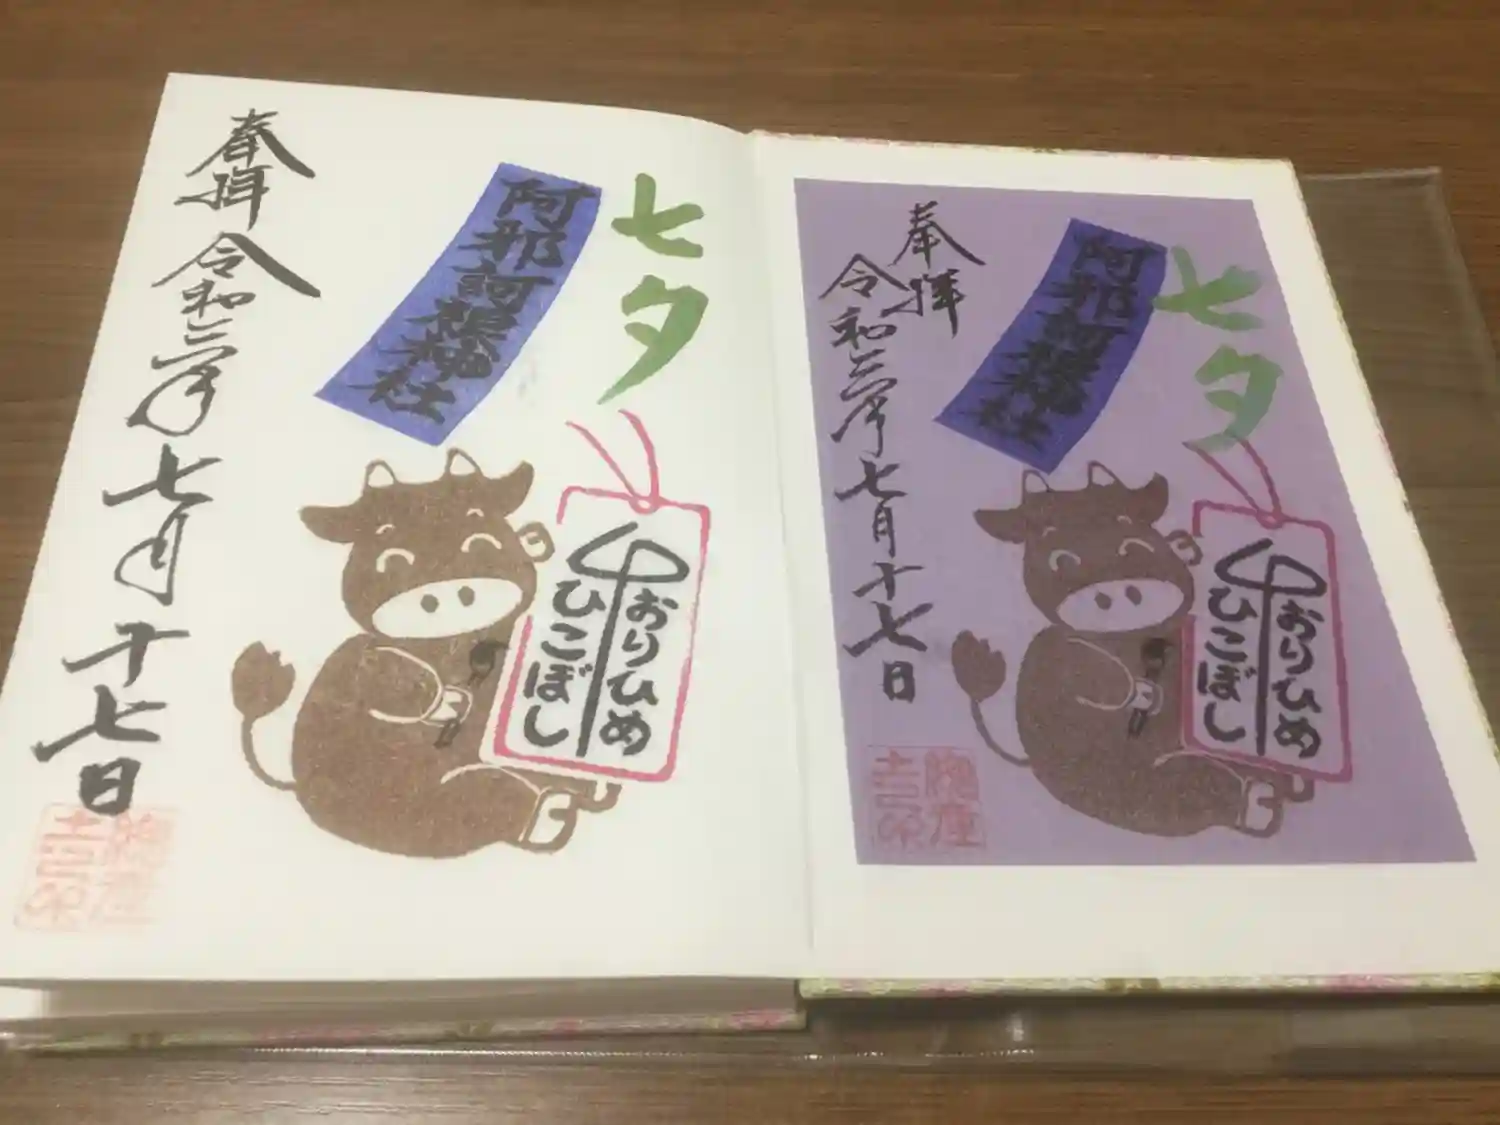 七夕
阿那訶根神社
おりひめ
ひこぼし
奉拝 令和三年七月十七日
七夕
阿那訶根神社
おりひめ
ひこぼし
奉拝
令和三年七月十七日